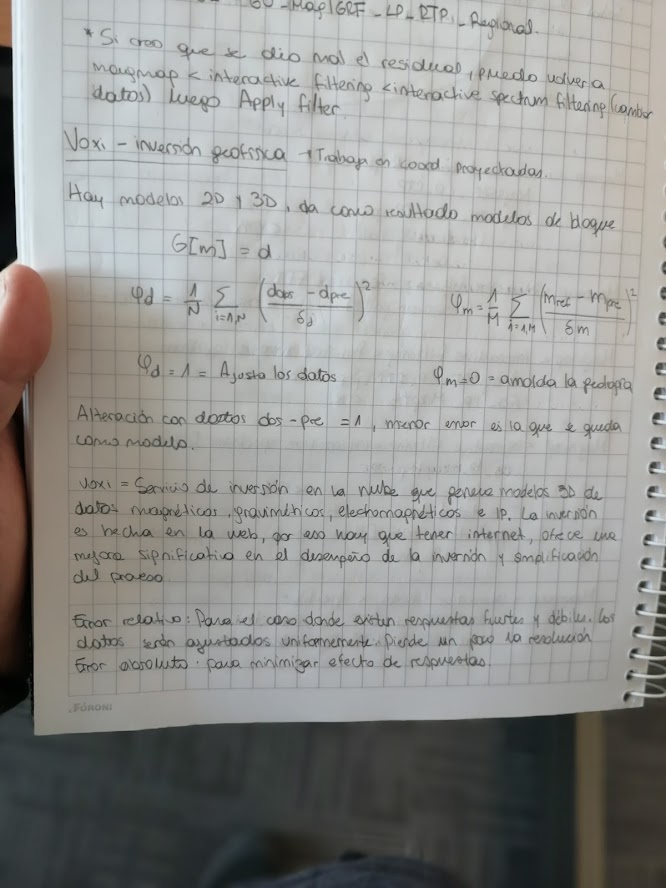 GU_Mag IGRF_LP_RTP_Regional.
* Si creo que se dio mal el residual, puedo volver a
magmap < interactive filtering < interactive spectrum filtering (cambiar
datos) luego Apply filter.
Voxi - inversión geofísica → Trabaja en coord proyectadas.
Hay modelos 2D y 3D, da como resultado modelos de bloque
G[m] = d
φd = 1/N Σ i=1,N ((dobs - dpre)/δd)²
φm = 1/M Σ i=1,M ((mref - mpre)/δm)²
φd = 1 = Ajusta los datos
φm=0 = amolda la geología
Alteración con datos dos-pre = 1, menor error es la que se queda
como modelo.
Voxi = Servicio de inversión en la nube que genera modelos 3D de
datos magnéticos, gravimétricos, electromagnéticos e IP. La inversión
es hecha en la web, por eso hay que tener internet, ofrece una
mejora significativa en el desempeño de la inversión y simplificación
del proceso
Error relativo: Para el caso donde existen respuestas fuertes y débiles. Los
datos serán ajustados uniformemente. Pierde un poco la resolución
Error absoluto: para minimizar efecto de respuestas.
.FORONI